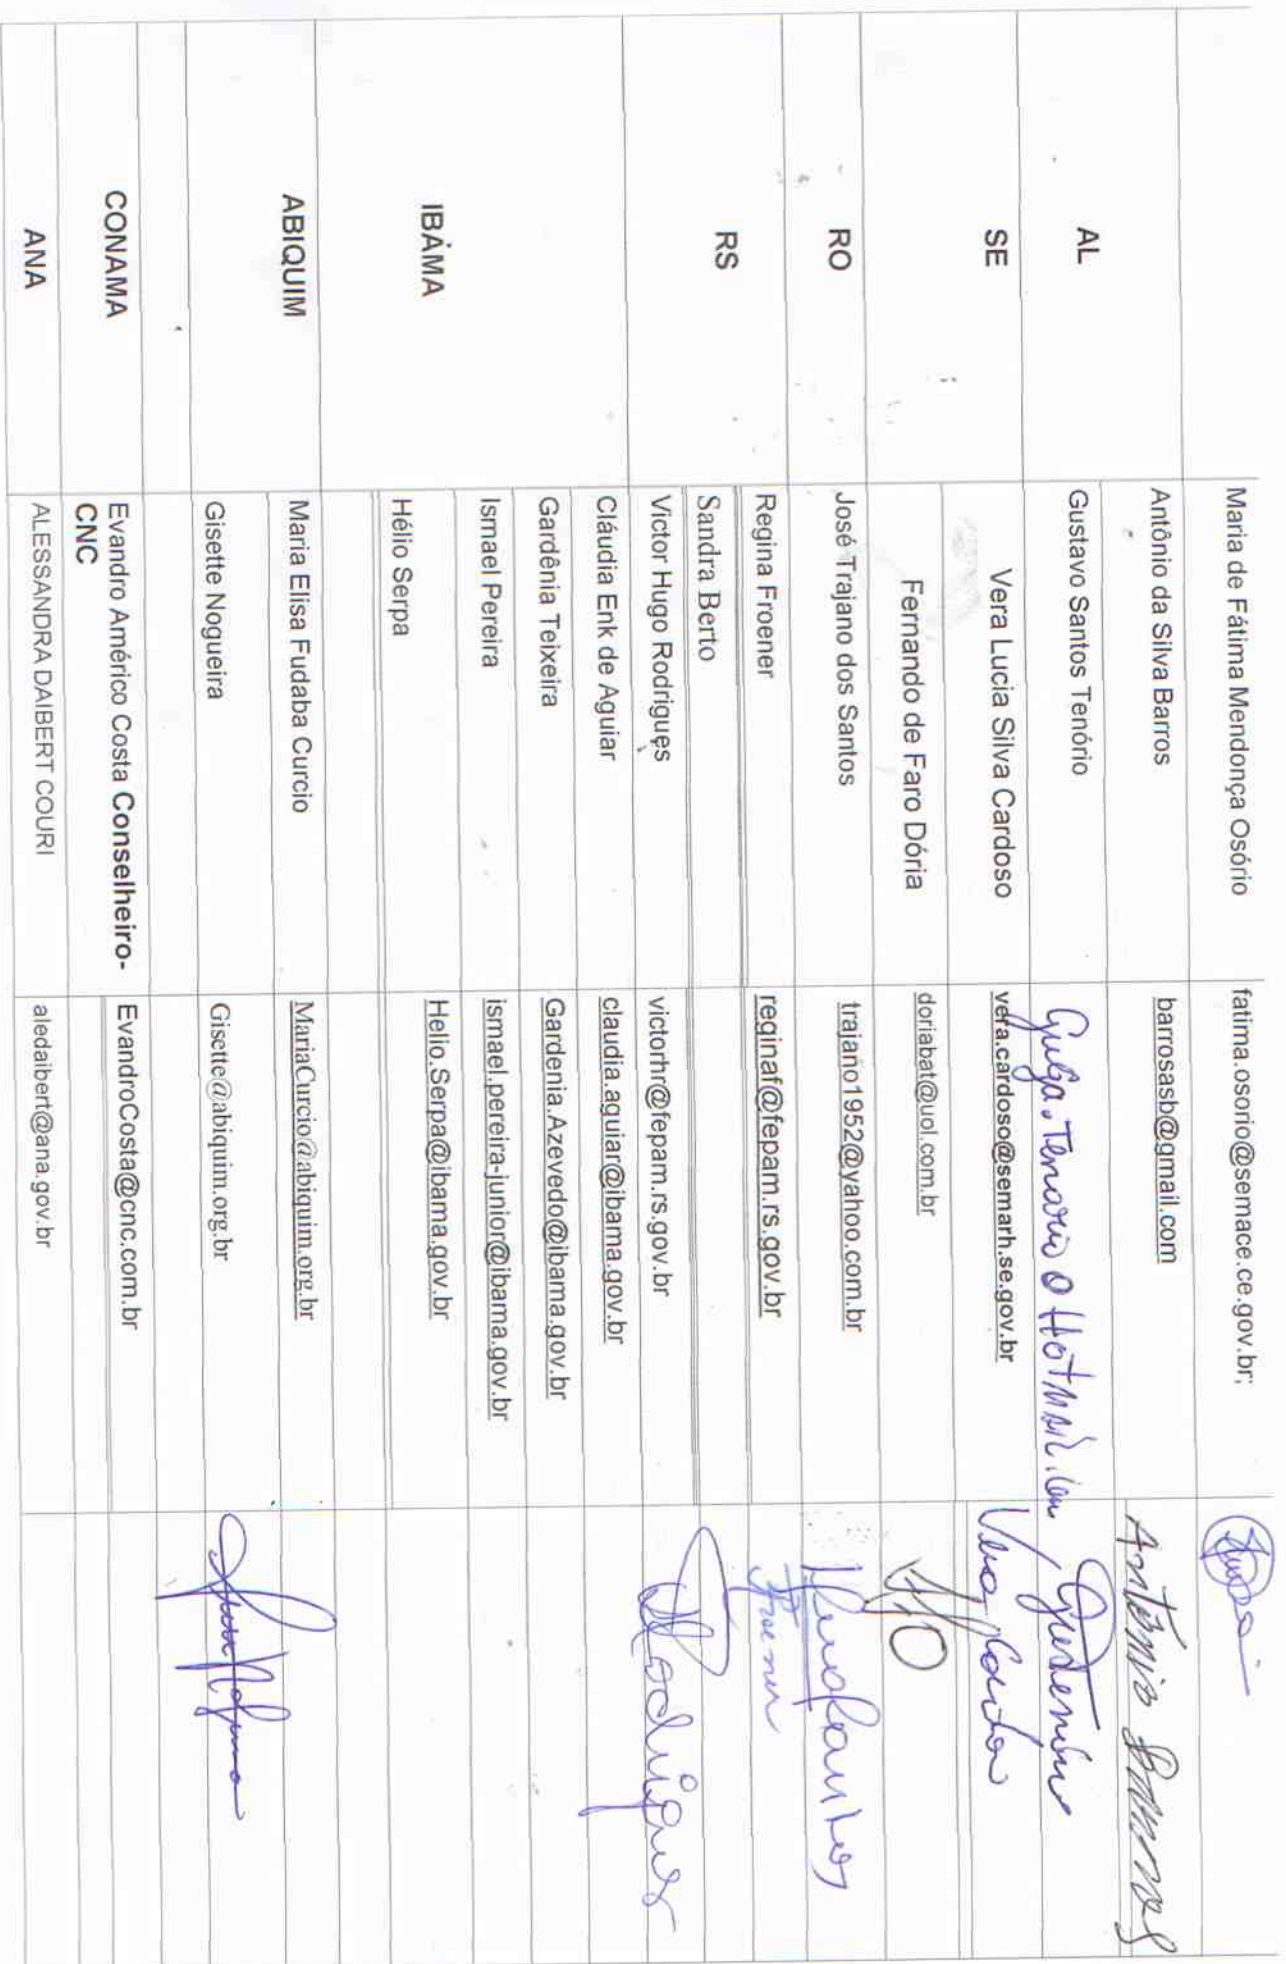 Maria de Fátima Mendonça Osório fatima.osorio@semace.ce.gov.br;
AL
Antônio da Silva Barros barrosasb@gmail.com Antônio Barros
Gustavo Santos Tenório Tenorio @ Hotmail.com
SE
Vera Lucia Silva Cardoso vera.cardoso@semarh.se.gov.br Vera Cardoso
Fernando de Faro Dória doriabat@uol.com.br
RO José Trajano dos Santos trajano1952@yahoo.com.br
RS
Regina Froener reginaf@fepam.rs.gov.br Froener
Sandra Berto
Victor Hugo Rodrigues victorhr@fepam.rs.gov.br Rodrigues
IBAMA
Cláudia Enk de Aguiar claudia.aguiar@ibama.gov.br
Gardênia Teixeira Gardenia.Azevedo@ibama.gov.br
Ismael Pereira ismael.pereira-junior@ibama.gov.br
Hélio Serpa Helio.Serpa@ibama.gov.br
ABIQUIM
Maria Elisa Fudaba Curcio MariaCurcio@abiquim.org.br
Gisette Nogueira Gisette@abiquim.org.br
CONAMA Evandro Américo Costa Conselheiro- EvandroCosta@cnc.com.br
CNC
ANA ALESSANDRA DAIBERT COURI aledaibert@ana.gov.br